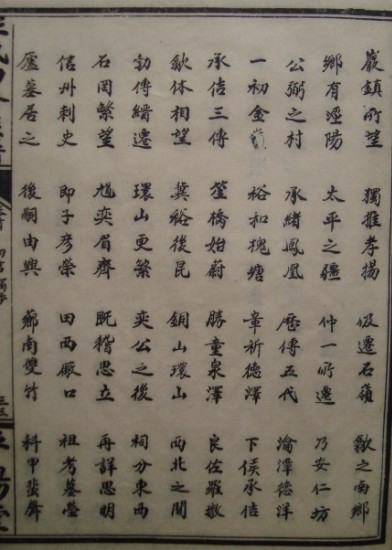 巖鎮所望 獨推孝揚 伋遷石嶺 歙之南鄉
鄉有涇陽 太平之疆 仲一所遷 乃安仁坊
公弼之村 承緒鳳凰 歷傳五代 淪潭德洋
一初金 裕和槐塘 章祈德澤 下侯承佶
承佶三傳 篁橋始蔚 勝童泉澤 良佐羅墩
歙休相望 冀裕後昆 銅山環山 西北之間
勃傳縉遷 環山更繁 奕公之後 祠分東西
石岡繁望 奕眉齊 既稽思立 再詳思明
信州刺史 即子彥榮 田西厰口 祖考墓塋
廬墓居之 後嗣由興 鄉南雙竹 科甲蜚聲